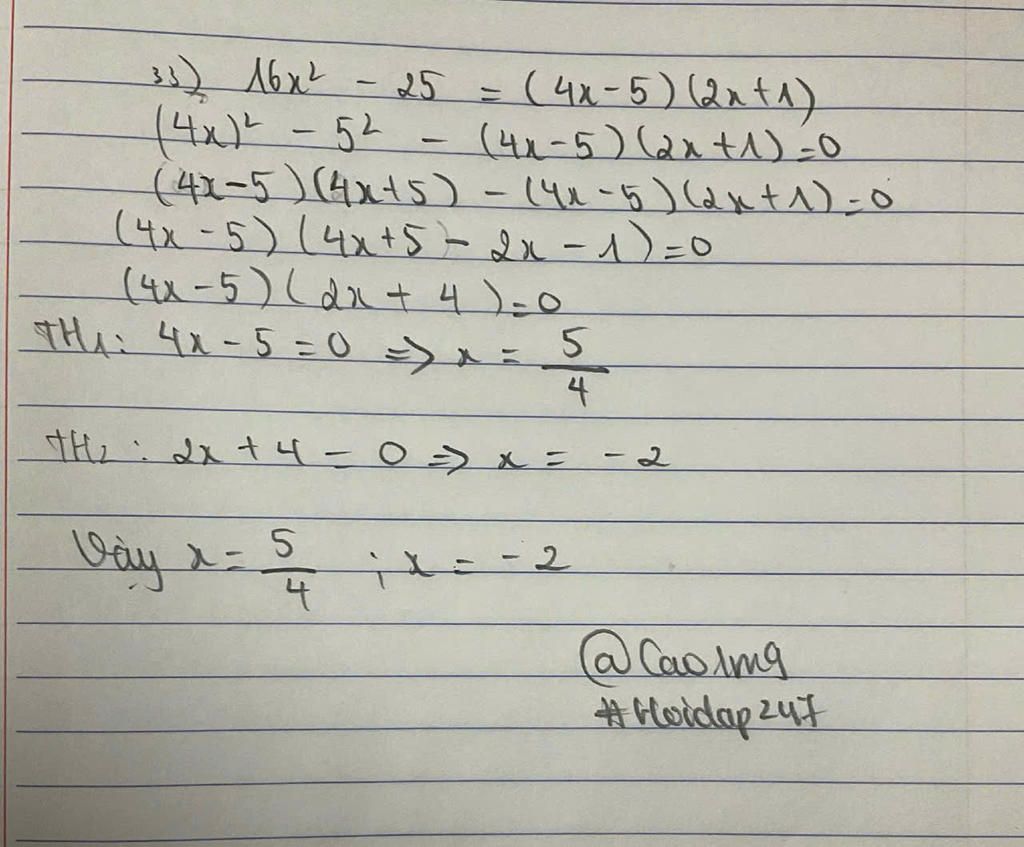 33) 16x² - 25 = (4x-5)(2x+1)
(4x)² - 5² - (4x-5)(2x+1)=0
(4x-5)(4x+5) - (4x-5)(2x+1)=0
(4x-5)(4x+5-2x-1)=0
(4x-5)(2x+4)=0
TH1: 4x-5=0 => x = 5/4
TH2: 2x+4=0 => x = -2
Vậy x = 5/4 ; x = -2
@Cao1mg
#Hoidap247